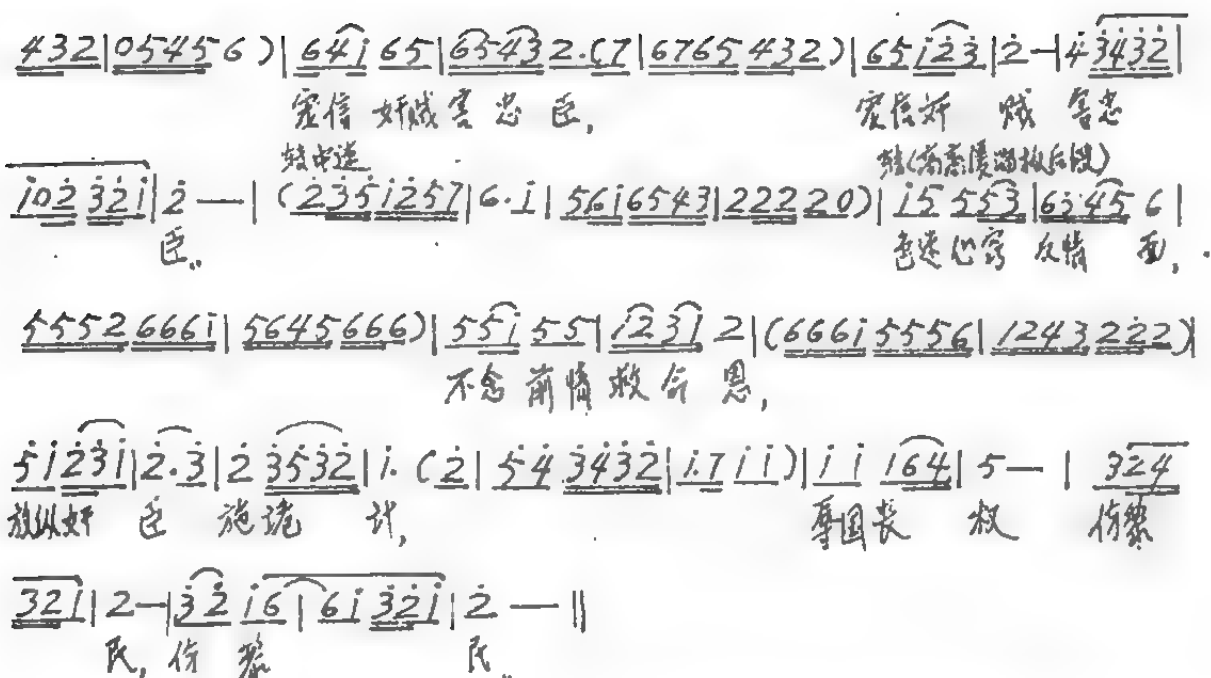 432|05456)|64i 65|65432.(7|6765 432)|65i23|2-|43432|
宠信奸贼害忠臣, 宠信奸贼害忠
转中速
i02 32i|2—|(235i257|6.i|56i6543|22220)|i5 553|6545 6|
臣。 色迷心窍反情面,
5552666i|5645666)|55i 55|i23i 2|(666i5556|1243222)|
不念前情救命恩,
5i23i|2.3|2 3532|i.(2|54 3432|i.7ii)|ii i64|5—|324
放纵奸臣施诡计, 辱国长权伤黎
32i|2—|32 i6|6i 32i|2—||
民,伤黎民。